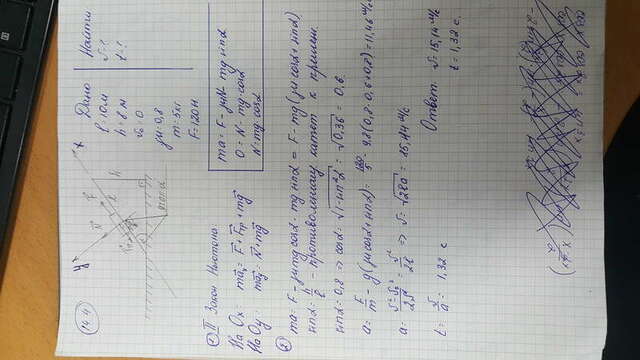 14.4
y
x
N
F
h
Дано
l = 10м
h = 8м
v₀ = 0
μ = 0,8
m = 5кг
F = 120Н
Найти
v - ?
t - ?
① II Закон Ньютона:
На Ox: ma⃗ₓ = F⃗ + F⃗тр + mg⃗
На Oy: ma⃗y = N⃗ + mg⃗
ma = F - μN - mg sinα
0 = N - mg·cosα
N = mg cosα
② ma = F - μmg cosα - mg sinα = F - mg(μcosα + sinα)
sinα = h/l - противолежащ катет к
sinα = 0,8 => cosα = √(1-sin²α) = √0,36 = 0,6.
a = F/m - g(μcosα + sinα) = 120/5 - 9,8(0,8·0,6+0,8) = 11,46 м/с
a = (v²-v₀²)/2S = v²/2l => v = √(2la) = 15,14 м/с
t = v/a = 1,32 с
Ответ: v = 15,14 м/с
t = 1,32 с.